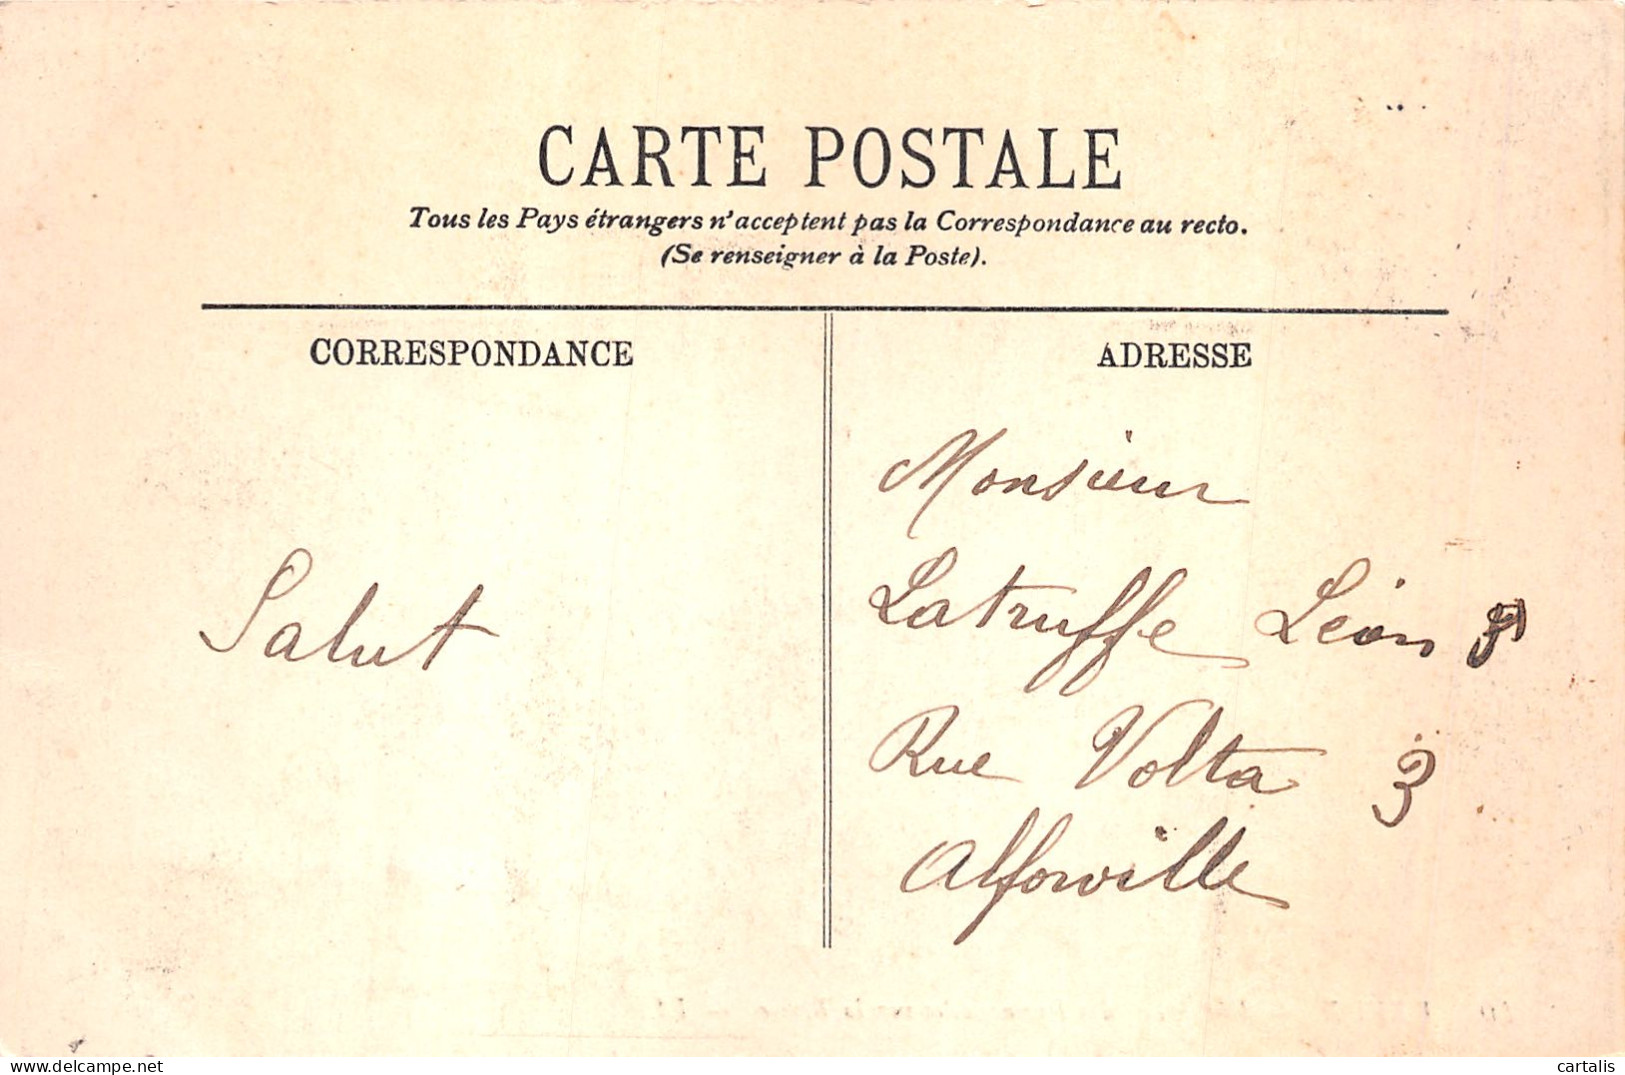 CARTE POSTALE
Tous les Pays étrangers n'acceptent pas la Correspondance au recto.
(Se renseigner à la Poste).
CORRESPONDANCE
ADRESSE
Salut
Monsieur
Latruffe Léon
Rue Volta 3
Alforville
cartalis